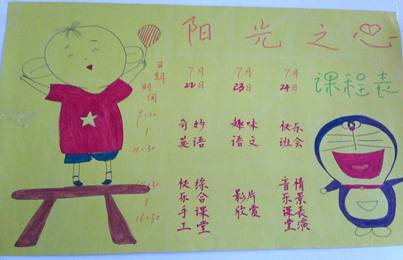 阳光之心
课程表
日期 7月22日 7月23日 7月24日
时间
奇妙英语 趣味语文 快乐班会
快乐手工 综合课堂 影片欣赏 音乐课堂 情景表演
16:30